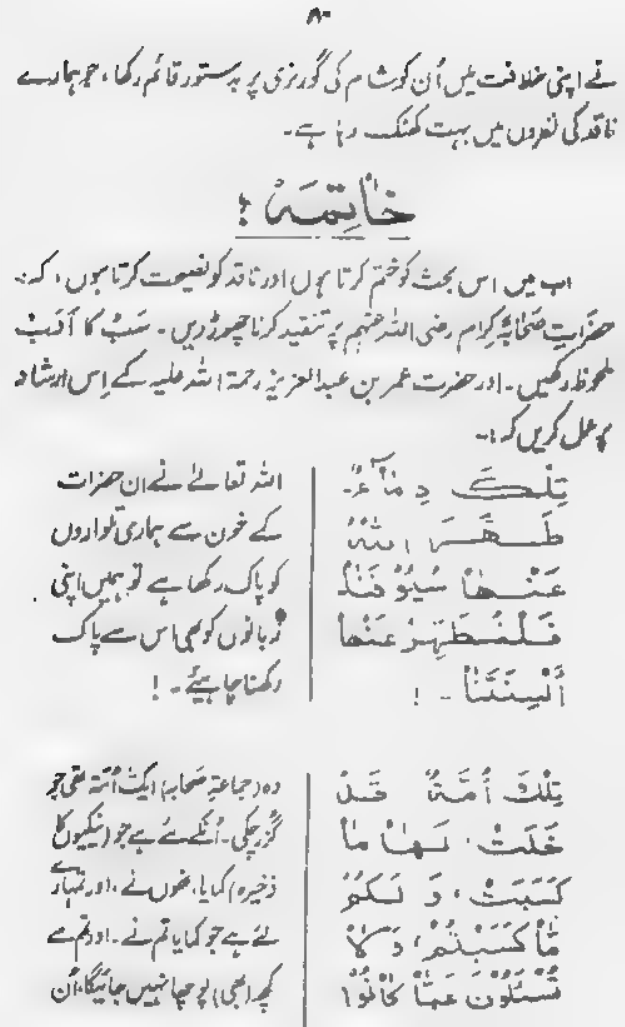 ۸۰
نے اپنی خلافت میں اُن کو شام کی گورنری پر بدستور قائم رکھا، جو ہمارے
ناقد کی نظروں میں بہت کھٹک رہا ہے۔
خَاتِمَہ :
اب میں اس بحث کو ختم کرتا ہوں اور ناقد کو نصیحت کرتا ہوں، کہ:
حضراتِ صَحَابَہ کِرام رضی اللہ عنہم پر تنقید کرنا چھوڑ دیں۔ سَبْ کا اَدَبْ
ملحوظ رکھیں۔ اور حضرت عمر بن عبدالعزیز رحمۃ اللہ علیہ کے اِس ارشاد
پر عمل کریں کہ:۔
تِلْكَ دِمَآءٌ
طَهَّرَ اللّٰهُ
عَنْهَا سُيُوْفَنَا
فَلْنُطَهِّرْ عَنْهَا
أَلْسِنَتَنَا ۔ !
اللہ تعالےٰ نے ان حضرات
کے خون سے ہماری تلواروں
کو پاک رکھا ہے تو ہمیں اپنی
زبانوں کو بھی اس سے پاک
رکھنا چاہیئے۔ !
تِلْكَ اُمَّةٌ قَدْ
خَلَتْ، لَهَا مَا
كَسَبَتْ، وَ لَكُمْ
مَّا كَسَبْتُمْ، وَلَا
تُسْئَلُوْنَ عَمَّا كَانُوْا
وہ (جماعۃِ صحابہ) ایک اُمّتہ تھی جو
گزر چکی۔ اُنکے لئے ہے جو (نیکیوں کا
ذخیرہ) کمایا اُنھوں نے، اور تمہارے
لئے ہے جو کمایا تم نے۔ اور تم سے
کچھ (بھی) پوچھا نہیں جائیگا، اُن